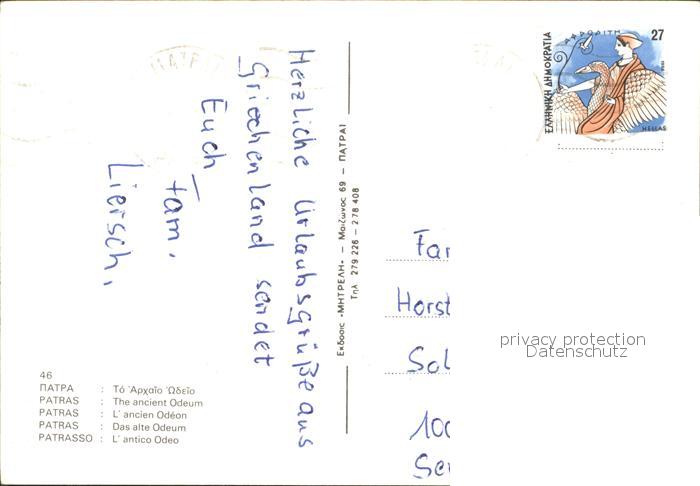 Herzliche Urlaubsgrüße aus
Griechenland sendet
Euch
Fam.
Liersch.
46
ΠΑΤΡΑ : Τό Ἀρχαῖο Ὠδεῖο
PATRAS : The ancient Odeum
PATRAS : L' ancien Odéon
PATRAS : Das alte Odeum
PATRASSO : L' antico Odeo
Εκδοσις «ΜΗΤΡΕΛΗ» – Μαιζωνος 69 – ΠΑΤΡΑΙ
Τηλ 279 226 – 278 408
ΕΛΛΗΝΙΚΗ ΔΗΜΟΚΡΑΤΙΑ
ΑΦΡΟΔΙΤΗ
27
HELLAS
Horst
privacy protection
Datenschutz